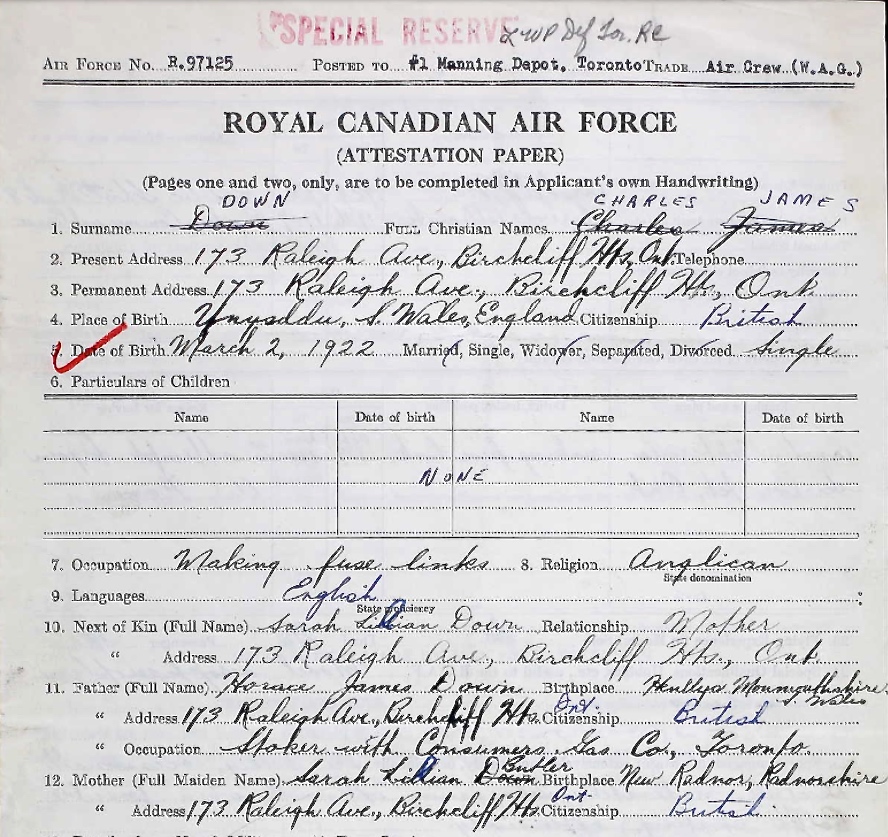 SPECIAL RESERVE
AIR FORCE NO. R.97125 POSTED TO #1 Manning Depot, Toronto TRADE Air Crew (W.A.G.)
ROYAL CANADIAN AIR FORCE
(ATTESTATION PAPER)
(Pages one and two, only, are to be completed in Applicant's own Handwriting)
DOWN CHARLES JAMES
1. Surname Down FULL Christian Names Charles James
2. Present Address 173 Raleigh Ave., Birchcliff Hts, Ont. Telephone
3. Permanent Address 173 Raleigh Ave., Birchcliff Hts, Ont.
4. Place of Birth Ynysddu, S. Wales, England Citizenship British
5. Date of Birth March 2, 1922 Married, Single, Widower, Separated, Divorced Single
6. Particulars of Children
Name Date of birth Name Date of birth
NONE
7. Occupation Making fuse links 8. Religion Anglican
State denomination
9. Languages English
State proficiency
10. Next of Kin (Full Name) Sarah Lillian Down Relationship Mother
" Address 173 Raleigh Ave., Birchcliff Hts., Ont.
11. Father (Full Name) Horace James Down Birthplace Monmouthshire S. Wales
" Address 173 Raleigh Ave., Birchcliff Hts. Ont. Citizenship British
" Occupation Stoker with Consumers Gas Co., Toronto.
12. Mother (Full Maiden Name) Sarah Lillian Down Butler Birthplace New Radnor, Radnorshire
" Address 173 Raleigh Ave., Birchcliff Hts. Ont. Citizenship British.